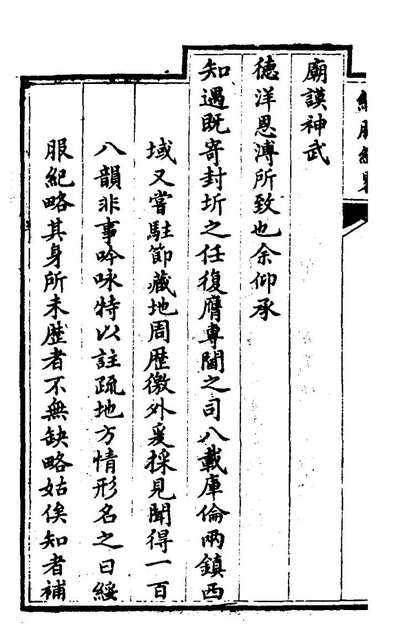 綏服紀畧
廟謨神武
德洋恩溥所致也余仰承
知遇既寄封圻之任復膺專閫之司八載庫倫兩鎮西
域又嘗駐節藏地周歷徼外爰採見聞得一百
八韻非事吟咏特以註疏地方情形名之曰綏
服紀略其身所未歷者不無缺略姑俟知者補